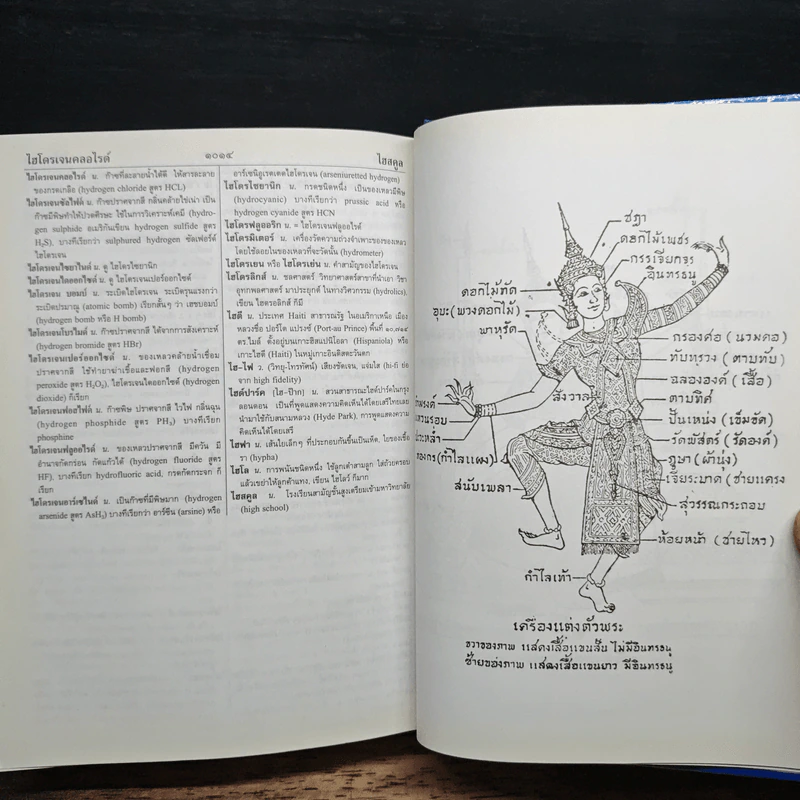 ไฮโดรเจนคลอไรด์ ๑๐๑๔ ไฮสคูล
ไฮโดรเจนคลอไรด์ น. ก๊าซที่ละลายน้ำได้ดี ให้สารละลาย
ของกรดเกลือ (hydrogen chloride สูตร HCL)
ไฮโดรเจนซัลไฟด์ น. ก๊าซปราศจากสี กลิ่นคล้ายไข่เน่า เป็น
ก๊าซมีพิษทำให้ปวดศีรษะ ใช้ในการวิเคราะห์เคมี (hydro-
gen sulphide อเมริกันเขียน hydrogen sulfide สูตร
H₂S). บางทีเรียกว่า sulphured hydrogen ซัลเฟอร์ต์
ไฮโดรเจน
ไฮโดรเจนไซยาไนด์ น. ดู ไฮโดรไซยานิก
ไฮโดรเจนไดออกไซด์ น. ดู ไฮโดรเจนเปอร์ออกไซด์
ไฮโดรเจน บอมบ์ น. ระเบิดไฮโดรเจน ระเบิดรุนแรงกว่า
ระเบิดปรมาณู (atomic bomb) เรียกสั้นๆ ว่า เฮชบอมบ์
(hydrogen bomb หรือ H bomb)
ไฮโดรเจนโบรไมด์ น. ก๊าซปราศจากสี ได้จากการสังเคราะห์
(hydrogen bromide สูตร HBr)
ไฮโดรเจนเปอร์ออกไซด์ น. ของเหลวคล้ายน้ำเชื่อม
ปราศจากสี ใช้ทำยาฆ่าเชื้อและฟอกสี (hydrogen
peroxide สูตร H₂O₂). ไฮโดรเจนไดออกไซด์ (hydrogen
dioxide) ก็เรียก
ไฮโดรเจนฟอสไฟด์ น. ก๊าซพิษ ปราศจากสี ไวไฟ กลิ่นฉุน
(hydrogen phosphide สูตร PH₃) บางทีเรียก
phosphine
ไฮโดรเจนฟลูออไรด์ น. ของเหลวปราศจากสี มีควัน มี
อำนาจกัดกร่อน กัดแก้วได้ (hydrogen fluoride สูตร
HF). บางทีเรียก hydrofluoric acid, กรดกัดกระจก ก็
เรียก
ไฮโดรเจนอาร์เซไนด์ น. เป็นก๊าซที่มีพิษมาก (hydrogen
arsenide สูตร AsH₃) บางทีเรียกว่า อาร์ซีน (arsine) หรือ
อาร์เซนิอูเรตเตดไฮโดรเจน (arseniuretted hydrogen)
ไฮโดรไซยานิก น. กรดชนิดหนึ่ง เป็นของเหลวมีพิษ
(hydrocyanic) บางทีเรียกว่า prussic acid หรือ
hydrogen cyanide สูตร HCN
ไฮโดรฟลูออริก น. = ไฮโดรเจนฟลูออไรด์
ไฮโดรมิเตอร์ น. เครื่องวัดความถ่วงจำเพาะของของเหลว
โดยใช้ลอยในของเหลวที่จะวัดนั้น (hydrometer)
ไฮโดรเยน หรือ ไฮโดรเย่น น. คำสามัญของไฮโดรเจน
ไฮโดรลิกส์ น. ชลศาสตร์ วิทยาศาสตร์สาขาที่นำเอา วิชา
อุทกพลศาสตร์ มาประยุกต์ ในทางวิศวกรรม (hydrolics),
เขียน ไฮดรอลิกส์ ก็มี
ไฮตี น. ประเทศ Haiti สาธารณรัฐ ในอเมริกาเหนือ เมือง
หลวงชื่อ ปอร์โต แปรงซ์ (Port-au Prince) พื้นที่ ๑๐,๗๑๔
ตร.ไมล์ ตั้งอยู่บนเกาะฮิสแปนิโอลา (Hispaniola) หรือ
เกาะไฮตี (Haiti) ในหมู่เกาะอินดีสตะวันตก
ไฮ-ไฟ ว. (วิทยุ-โทรทัศน์) เสียงชัดเจน, แจ่มใส (hi-fi ย่อ
จาก high fidelity)
ไฮด์ปาร์ค [ไฮ-ป๊าก] น. สวนสาธารณะไฮด์ปาร์คในกรุง
ลอนดอน เป็นที่พูดแสดงความคิดเห็นได้โดยเสรีไทยเลย
นำมาใช้กับสนามหลวง (Hyde Park), การพูดแสดงความ
คิดเห็นได้โดยเสรี
ไฮฟา น. เส้นใยเล็กๆ ที่ประกอบกันขึ้นเป็นเห็ด, ใยของเชื้อ
รา (hypha)
ไฮโล น. การพนันชนิดหนึ่ง ใช้ลูกเต๋าสามลูก ใส่ถ้วยครอบ
แล้วเขย่าให้ลูกค้าแทง, เขียน ไฮโลว์ ก็มาก
ไฮสคูล น. โรงเรียนสามัญชั้นสูงเตรียมเข้ามหาวิทยาลัย
(high school)
ชฎา
ดอกไม้เพชร
กรรเจียกจร
อินทรธนู
ดอกไม้ทัด
อุบะ (พวงดอกไม้)
พาหุรัด
กรองศอ (นวมคอ)
ทับทรวง (ตาบทับ)
ฉลององค์ (เสื้อ)
สังวาล
ตาบทิศ
ปั้นเหน่ง (เข็มขัด)
รัดพัสตร์ (รัดองค์)
ภูษา (ผ้านุ่ง)
เจียระบาด (ชายแครง
สุวรรณกระถอบ
ห้อยหน้า (ชายไหว)
แหวนรอบ
ปะวะหล่ำ
ทองกร (กำไลแผง)
สนับเพลา
กำไลเท้า
เครื่องแต่งตัวพระ
ขวาของภาพ แสดงเสื้อแขนสั้น ไม่มีอินทรธนู
ซ้ายของภาพ แสดงเสื้อแขนยาว มีอินทรธนู